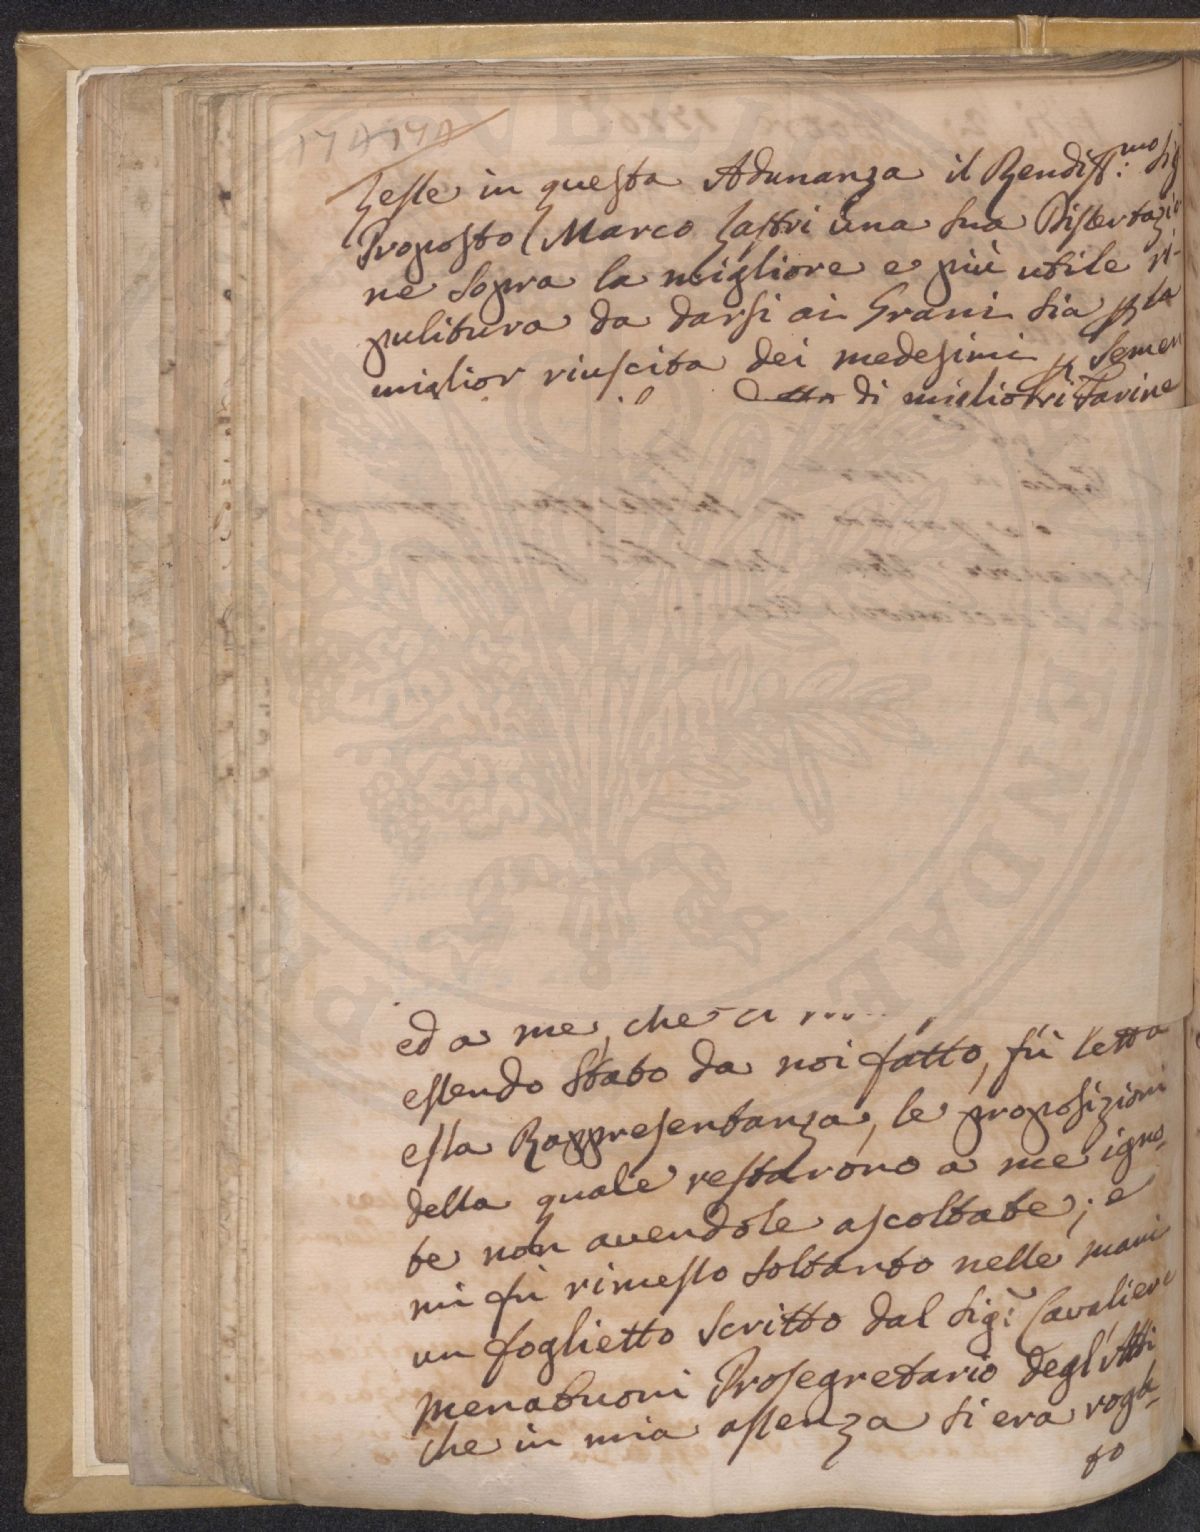 174 174
Lesse in questa Adunanza il Rendiss:mo Sig
Proposto Marco Lastri una sua Dissertazio
ne sopra la migliore e più utile ri-
pulitura da darsi ai Grani sia p la
miglior riuscita dei medesimi p Semen
di migliori Farine
ed a me, che
essendo stato da noi fatto, fù letta
essa Rappresentanza, le proposizioni
della quale restarono a me igno-
te non avendole ascoltate; e
mi fù rimesso soltanto nelle mani
un foglietto scritto dal Sig:r Cavaliere
Menabuoni Prosegretario degl'Atti
che in mia assenza si era roga-
to